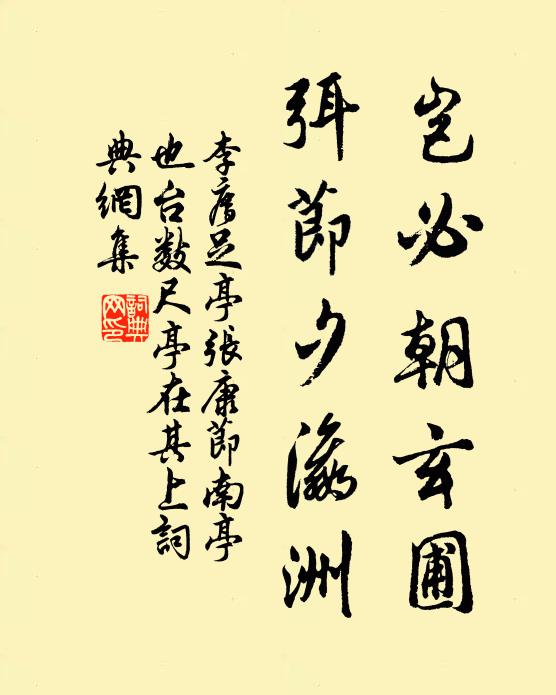 岂必朝玄圃
弭节夕瀛洲
李膺足亭张康节南亭
也台数尺亭在其上词
典网集
詞典
网印